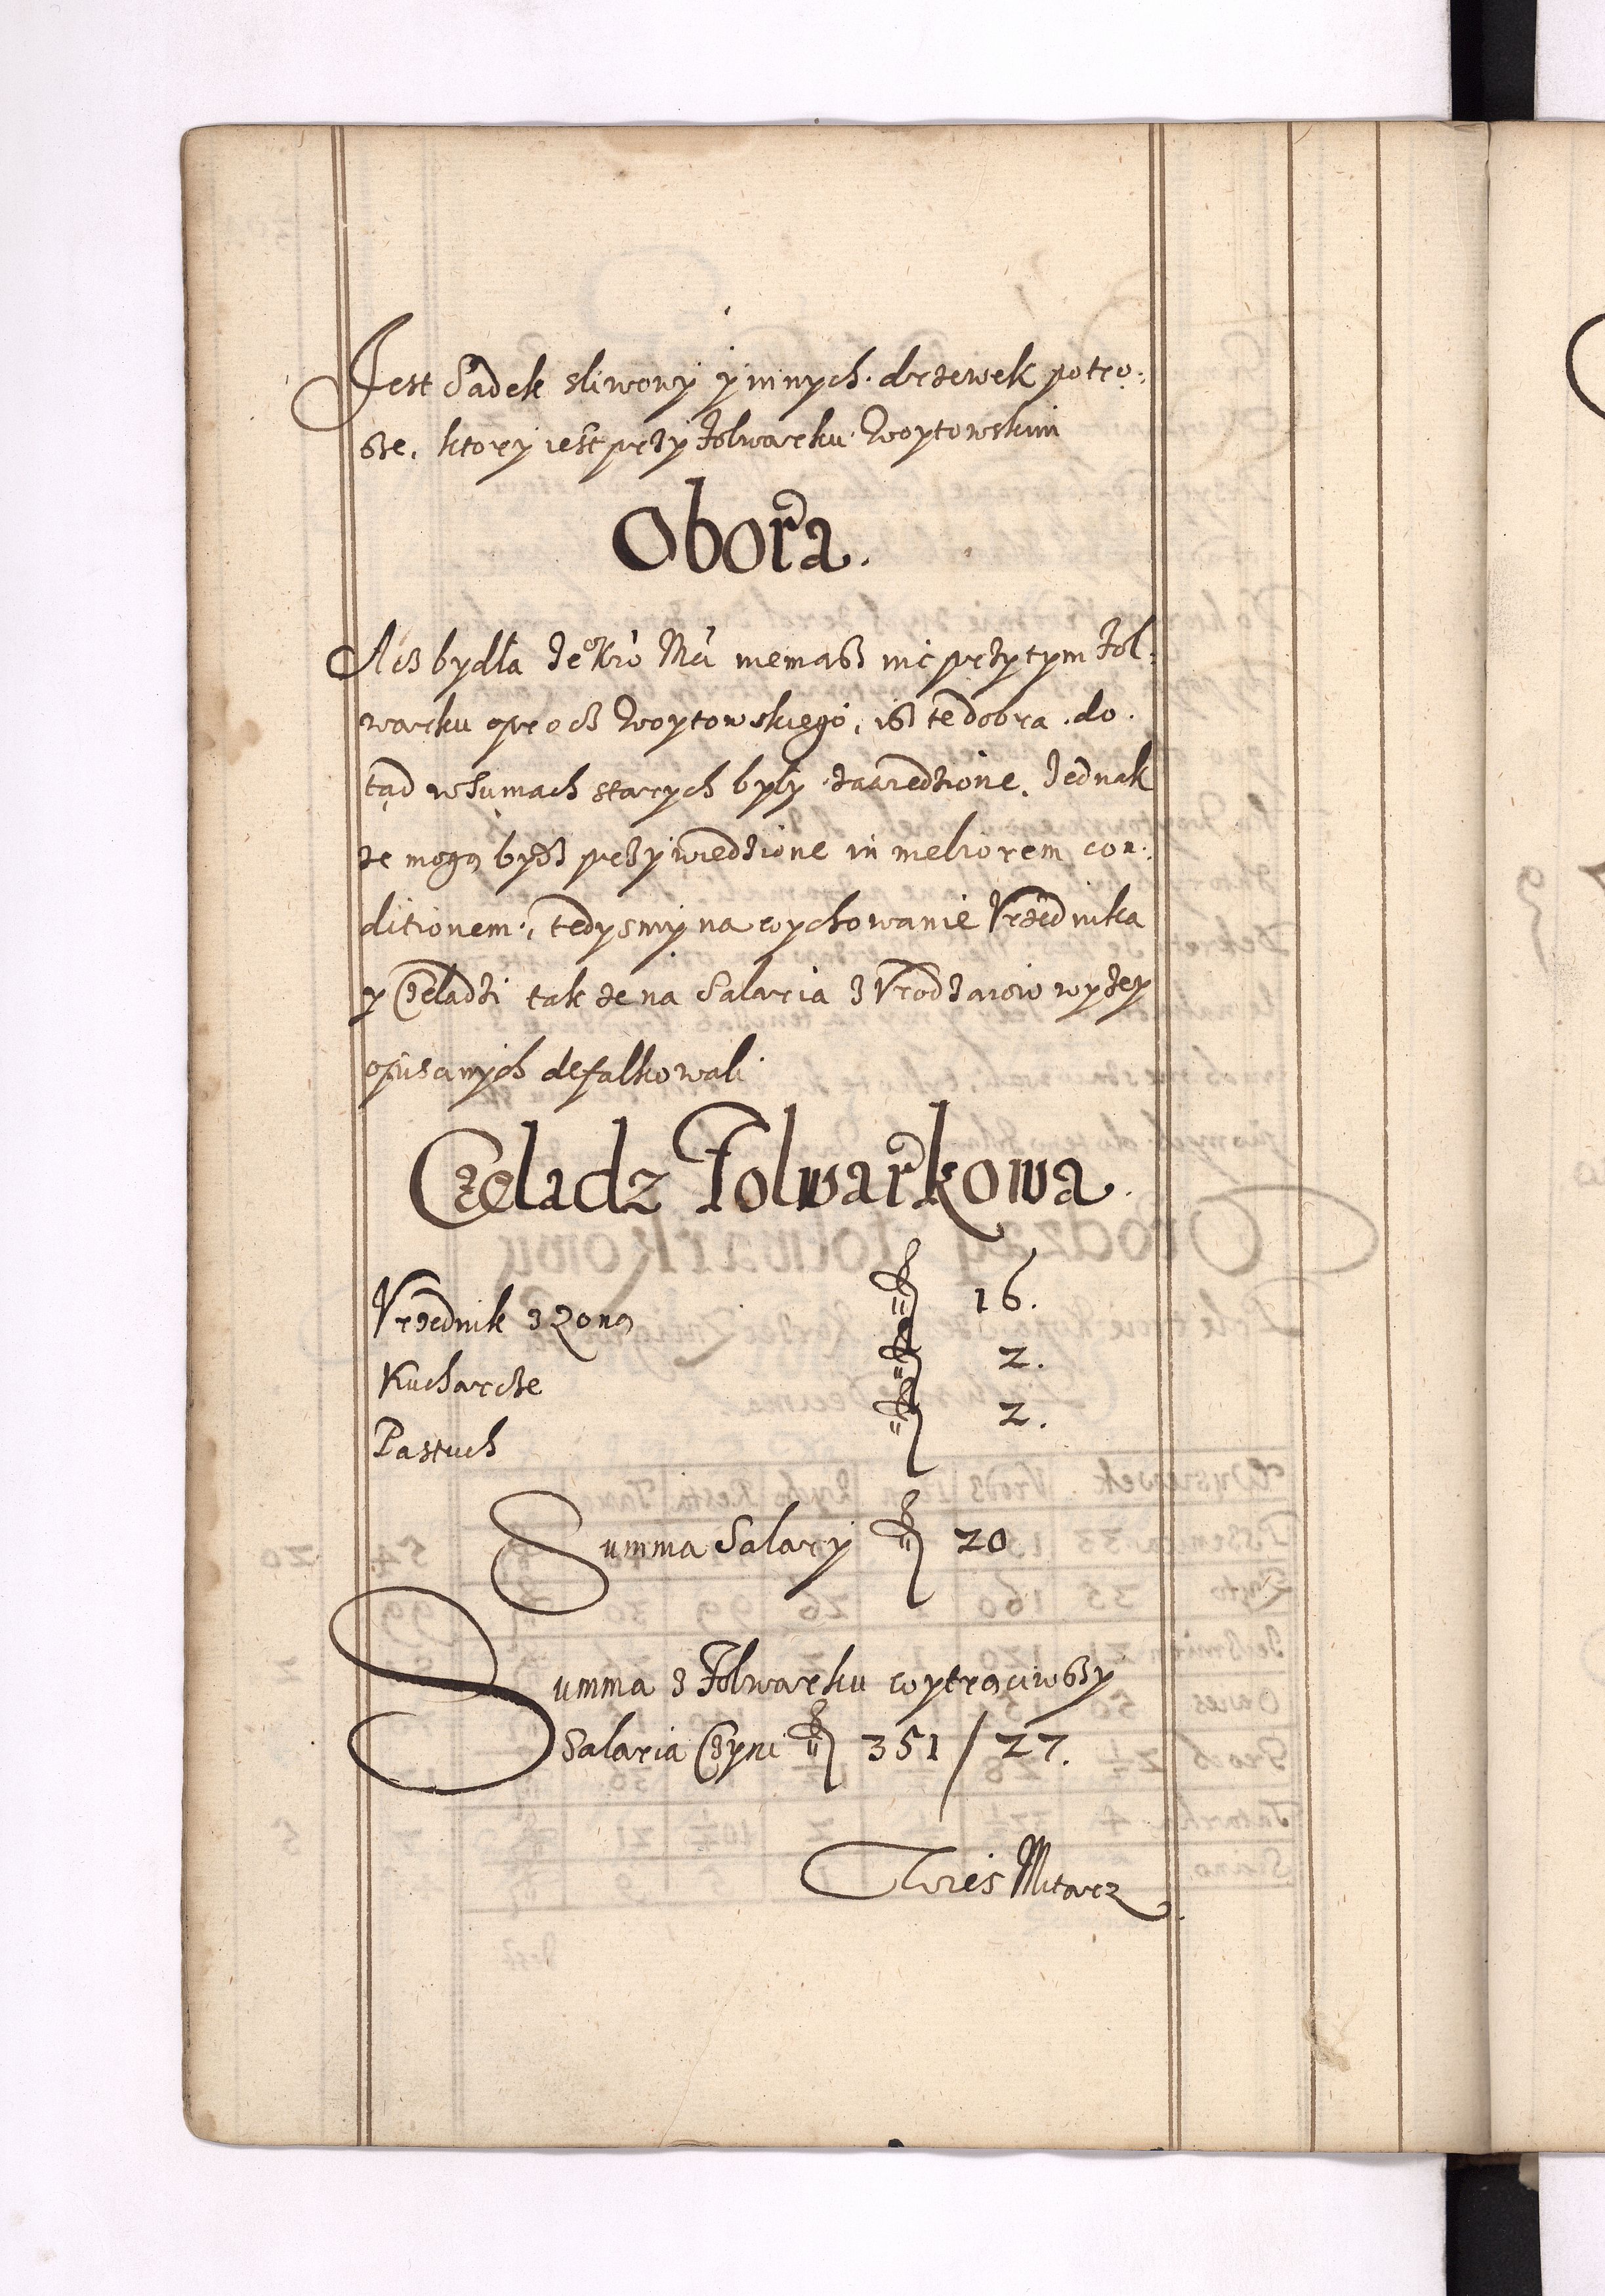 Jest Sadek sliwony y innych drzewek potro:
sze, ktory iest przy folwarku Woytowskim
Obora.
Acz bydła Je⁰ Kro Mci niemasz nic przy tym fol:
warku oprocz Woytowskiego, isz te dobra do
tąd w sumach starych były zawiedzione. Jednak
ze mogą bydz przywiedzione in meliorem con:
ditionem, tedysmy na wychowanie Vrzednika
y Czeladzi tak ze na Salaria z Vrodzaiow wyzey
opisanych defalkowali
Czeladz Folwarkowa.
Vrzednik z Zoną 16.
Kucharcze 2.
Pastuch 2.
Summa Salary 20
Summa z Folwarku wytrąciwszy
Salaria Czyni 351 / 27.